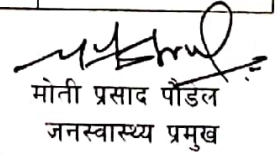 मोती प्रसाद पौडेल
जनस्वास्थ्य प्रमुख